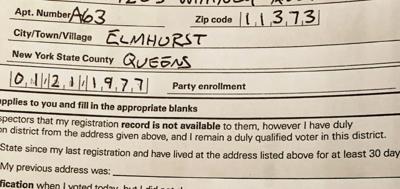 Apt. Number A63 Zip code 11373
City/Town/Village ELMHURST
New York State County QUEENS
01 21 1977 Party enrollment
applies to you and fill in the appropriate blanks
spectors that my registration record is not available to them, however I have duly
on district from the address given above, and I remain a duly qualified voter in this district.
State since my last registration and have lived at the address listed above for at least 30 day
My previous address was:
fication when I voted today, but I did